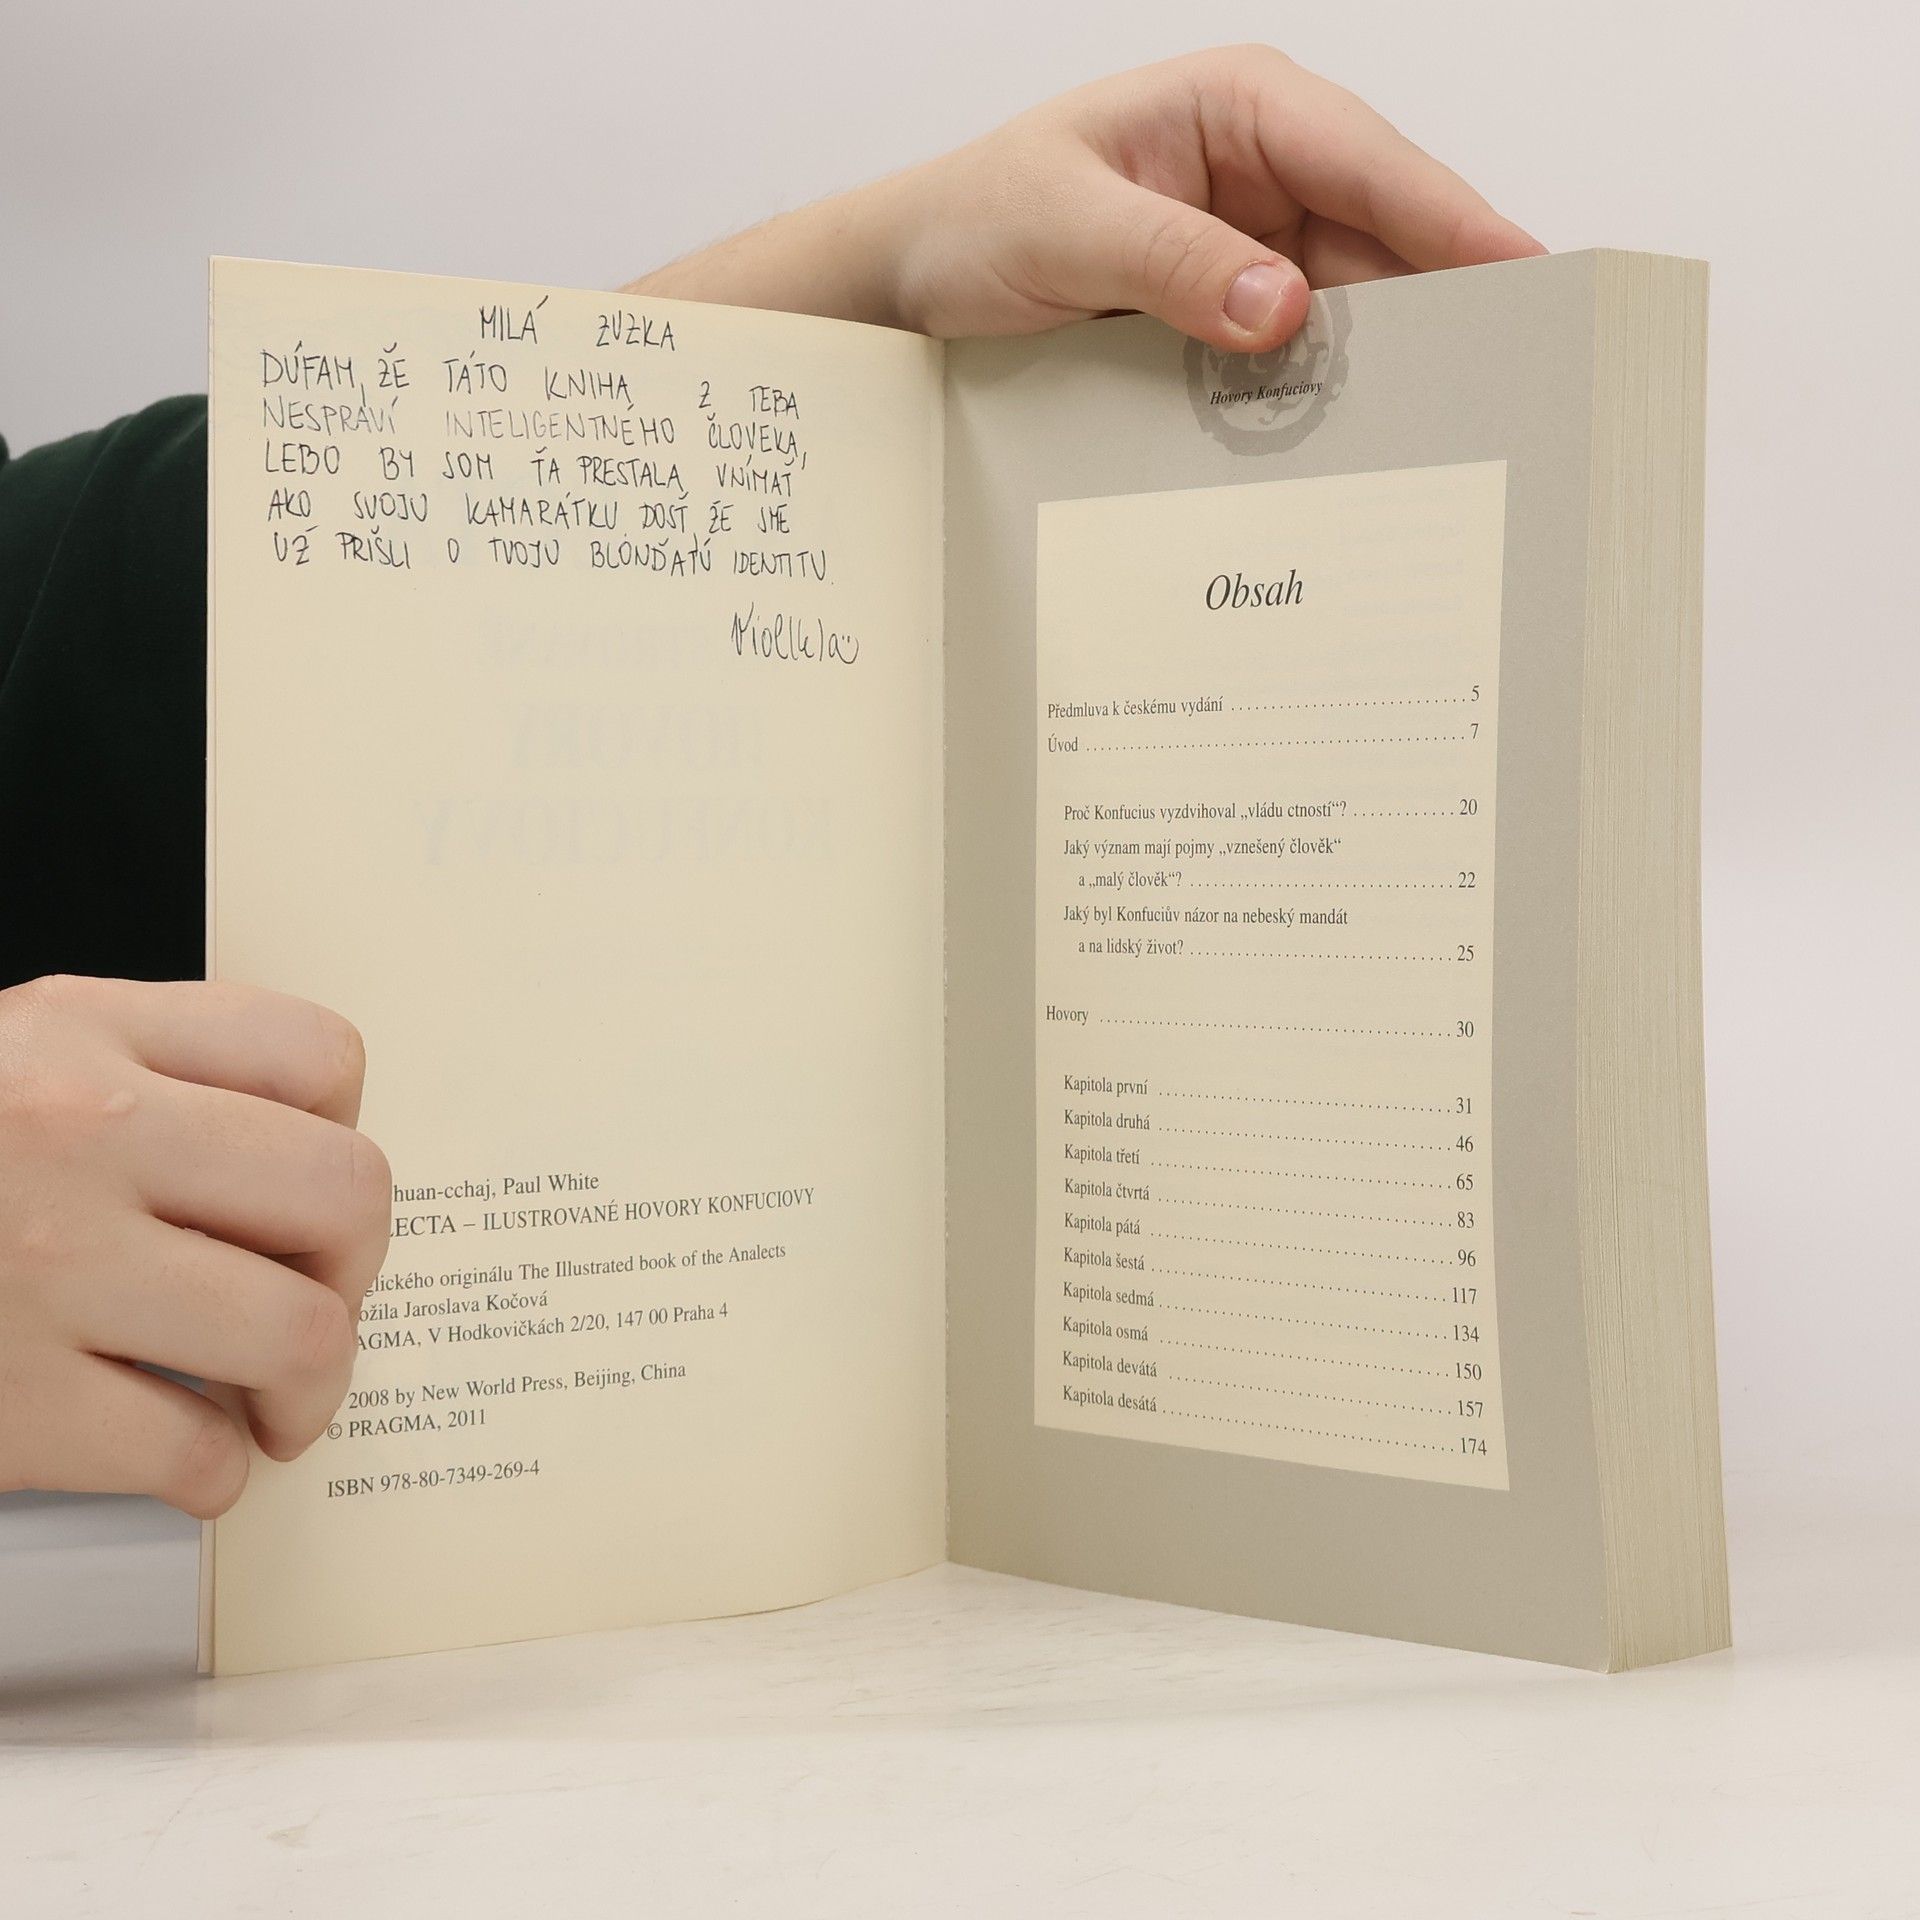 MILÁ ZUZKA
DÚFAM, ŽE TÁTO KNIHA Z TEBA
NESPRAVÍ INTELIGENTNÉHO ČLOVEKA,
LEBO BY SOM ŤA PRESTALA VNÍMAŤ
AKO SVOJU KAMARÁTKU DOSŤ, ŽE SME
UŽ PRIŠLI O TVOJU BLONĎATÚ IDENTITU.
huan-cchaj, Paul White
LECTA – ILUSTROVANÉ HOVORY KONFUCIOVY
glického originálu The Illustrated book of the Analects
ožila Jaroslava Kočová
AGMA, V Hodkovičkách 2/20, 147 00 Praha 4
2008 by New World Press, Beijing, China
© PRAGMA, 2011
ISBN 978-80-7349-269-4
Hovory Konfuciovy
Obsah
Předmluva k českému vydání 5
Úvod 7
Proč Konfucius vyzdvihoval „vládu ctností“? 20
Jaký význam mají pojmy „vznešený člověk“
a „malý člověk“? 22
Jaký byl Konfuciův názor na nebeský mandát
a na lidský život? 25
Hovory 30
Kapitola první 31
Kapitola druhá 46
Kapitola třetí 65
Kapitola čtvrtá 83
Kapitola pátá 96
Kapitola šestá 117
Kapitola sedmá 134
Kapitola osmá 150
Kapitola devátá 157
Kapitola desátá 174